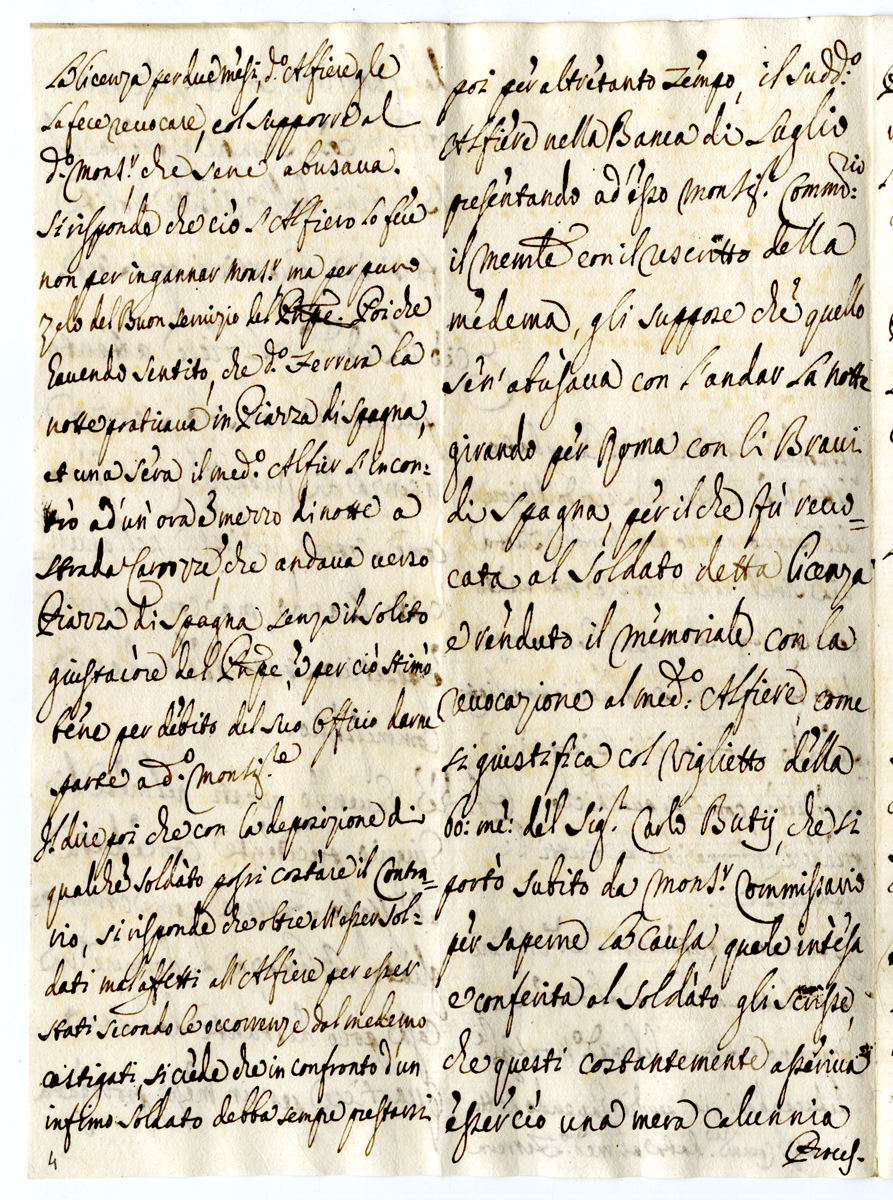 La licenza per due mesi, d.º Alfiere gle
la fece revocare, col supporre al
d.º Mons.r, che se ne abusava.
Si risponde che ciò l'Alfiero lo fece
non per ingannar Mons.r ma per puro
Zelo del Buon servizio del Pnpe. Poiche
havendo sentito, che d.º Ferrera la
notte praticava in Piazza di Spagna,
et una sera il med.º Alfier l'incon=
trò ad'un'ora e mezzo di notte a
strada Carozze, che andava verso
Piazza di Spagna senza il solito
giustacore del Pnpe, e perciò stimò
bene per debito del suo Offitio darne
parte a d.º Monsig.re
Il dire poi che con la deposizione di
qualche soldato possi costare il Contra=
rio, si risponde che oltre all'esser Sol=
dati mal affetti all'Alfiere per esser
stati secondo le occorrenze dal medemo
castigati, si crede che in confronto d'un
infimo soldato debba sempre prestarsi
4
poi per altretanto Tempo, il sudd.º
Alfiere nella Banca di Luglio
presentando ad'esso Monsig.r Commo:rio
il Memle con il rescritto della
medema, gli suppose che quello
sen'abusava con l'andar la notte
girando per Roma con li Bravi
di Spagna, per il che fù revo=
cata al soldato detta licenza
e renduto il memoriale con la
revocazione al med.º Alfiere, come
si giustifica col Viglietto della
bo: me: del Sig.r Carlo Butij, che si
portò subito da Mons.r Commissario
per saperne la Causa, quale intesa
e conferita al soldato gli scrisse,
che questi costantemente asseriva
esser ciò una mera calunnia